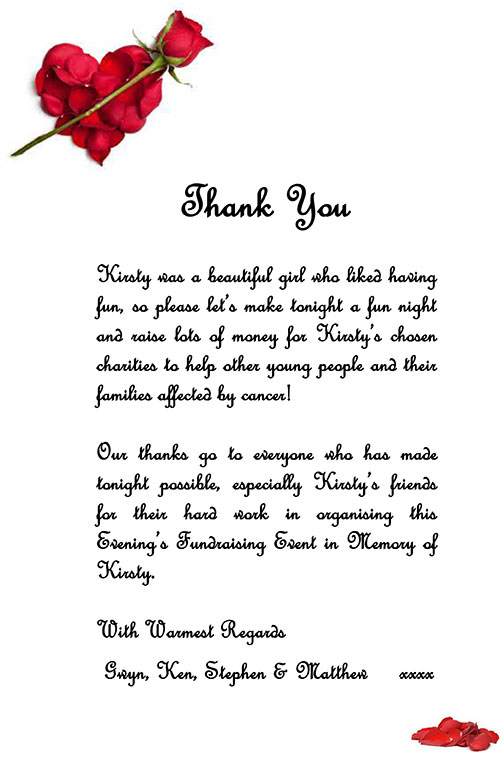 Thank You
Kirsty was a beautiful girl who liked having
fun, so please let's make tonight a fun night
and raise lots of money for Kirsty's chosen
charities to help other young people and their
families affected by cancer!
Our thanks go to everyone who has made
tonight possible, especially Kirsty's friends
for their hard work in organising this
Evening's Fundraising Event in Memory of
Kirsty.
With Warmest Regards
Gwyn, Ken, Stephen & Matthew xxxx